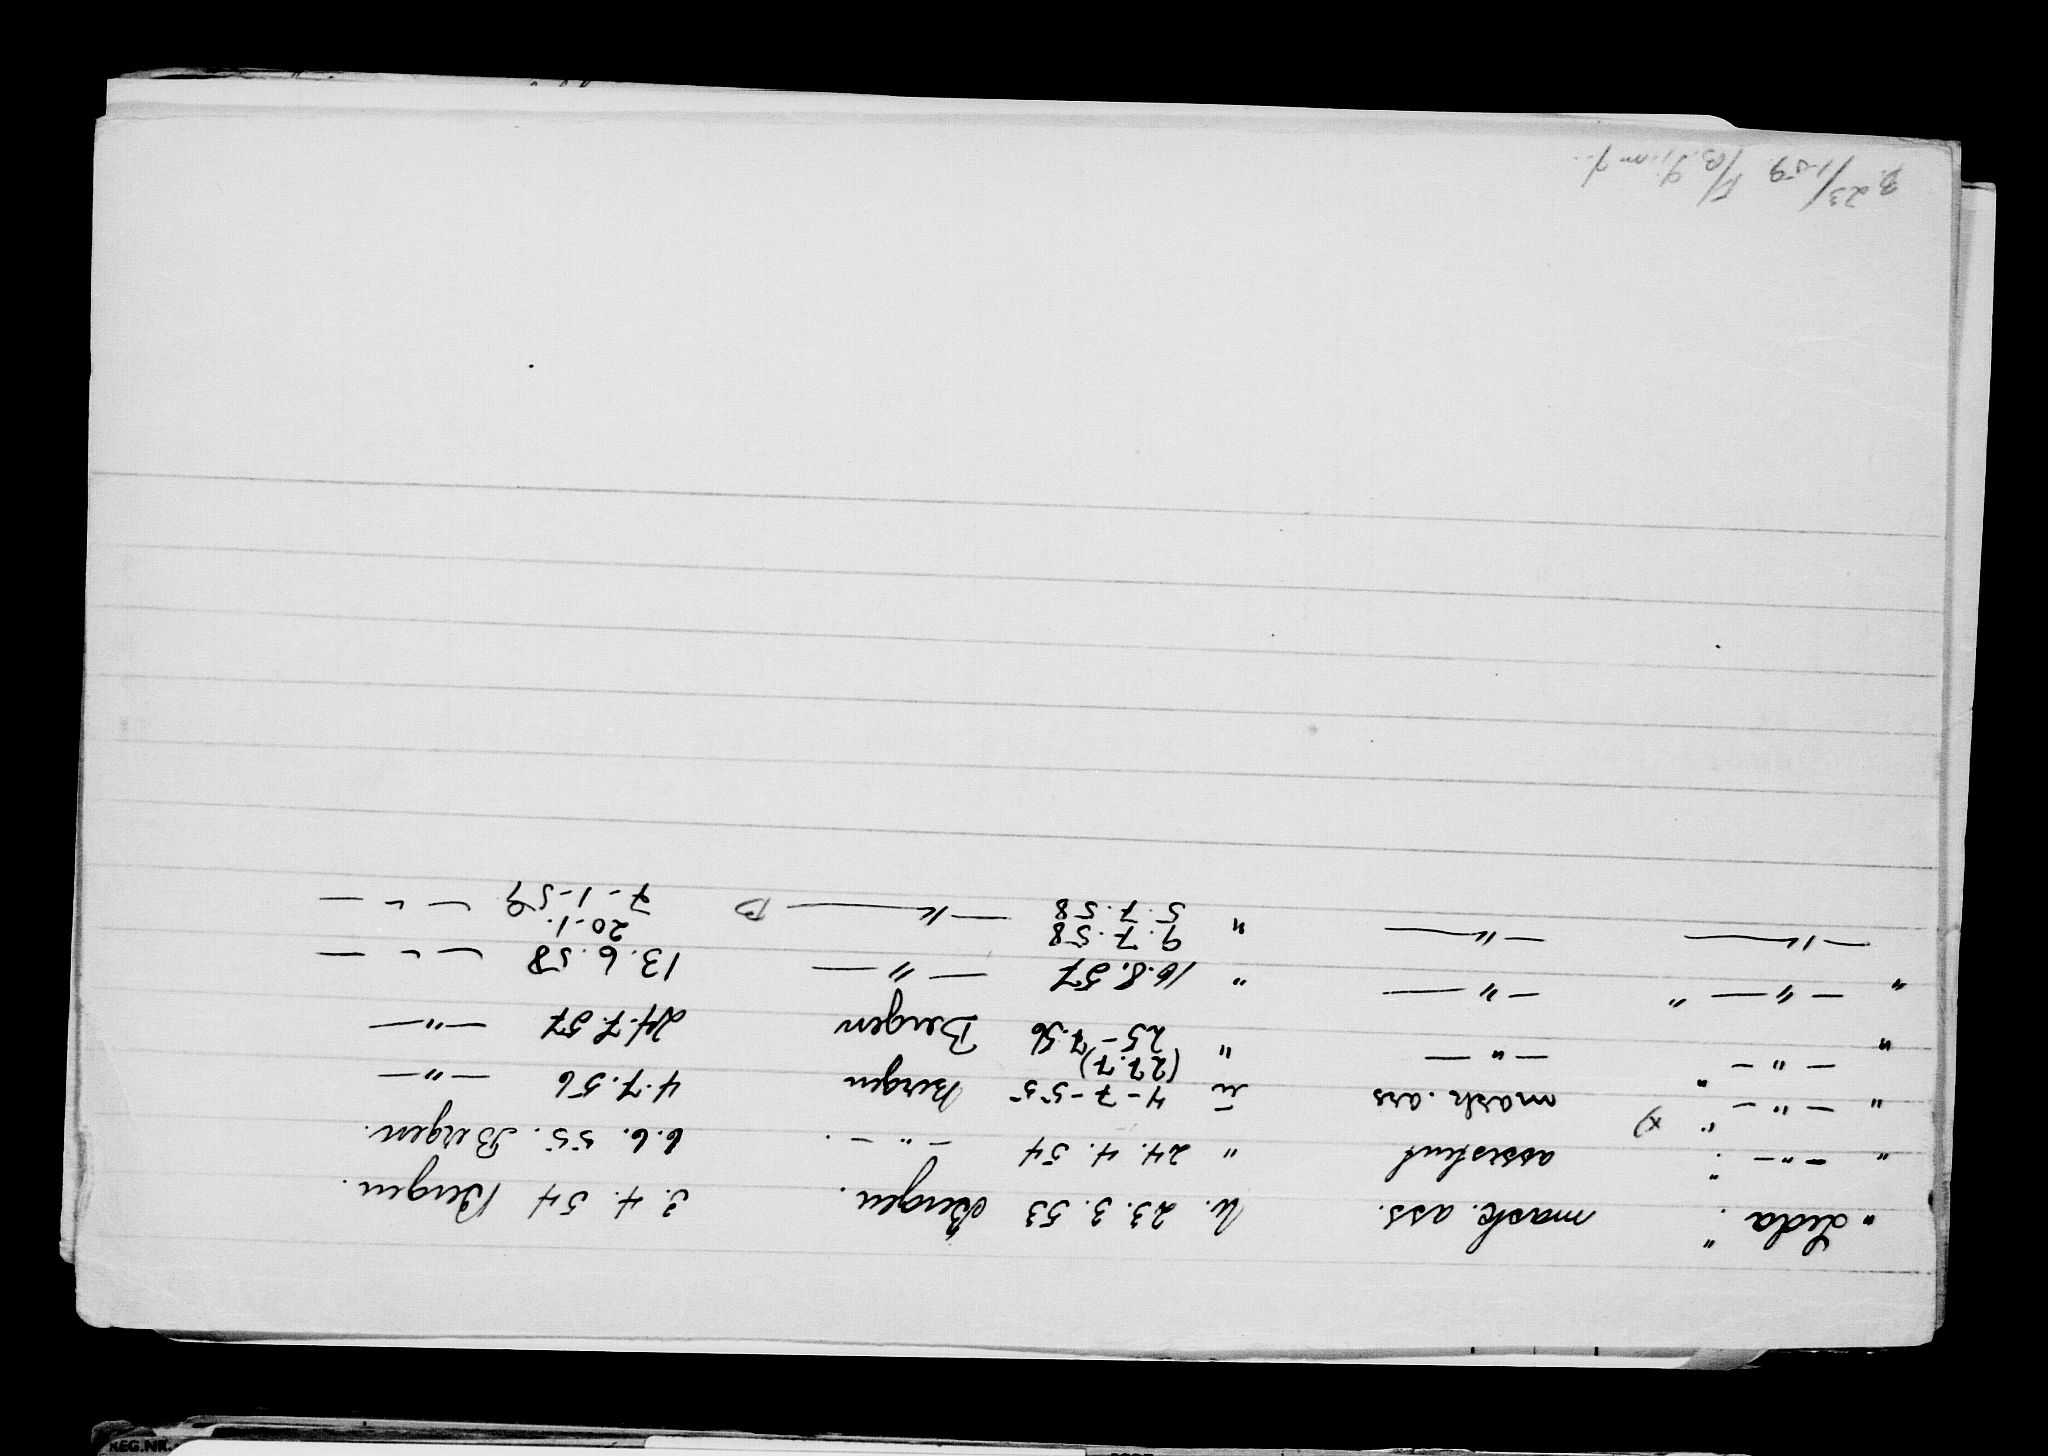 "Leda". mask. ass. u. 23.3.53 Bergen. 3.4.54 Bergen.
" —"— ". assistent " 24.4.54 —"—. 6.6.55. Bergen.
" —"— " x) mask. ass u 4-7-55 Bergen 4.7.56 —"—
(27.7)
" —"— " —"— " 25-7.56 Bergen 24.7.57 —"—
" —"— " —"— " 16.8.57 —"— 13.6.58 —"—
9.7.58 20-1.
—"— —"— " 5.7.58 —"— 7-1-59 —"—
23/1-59
REG.NR.